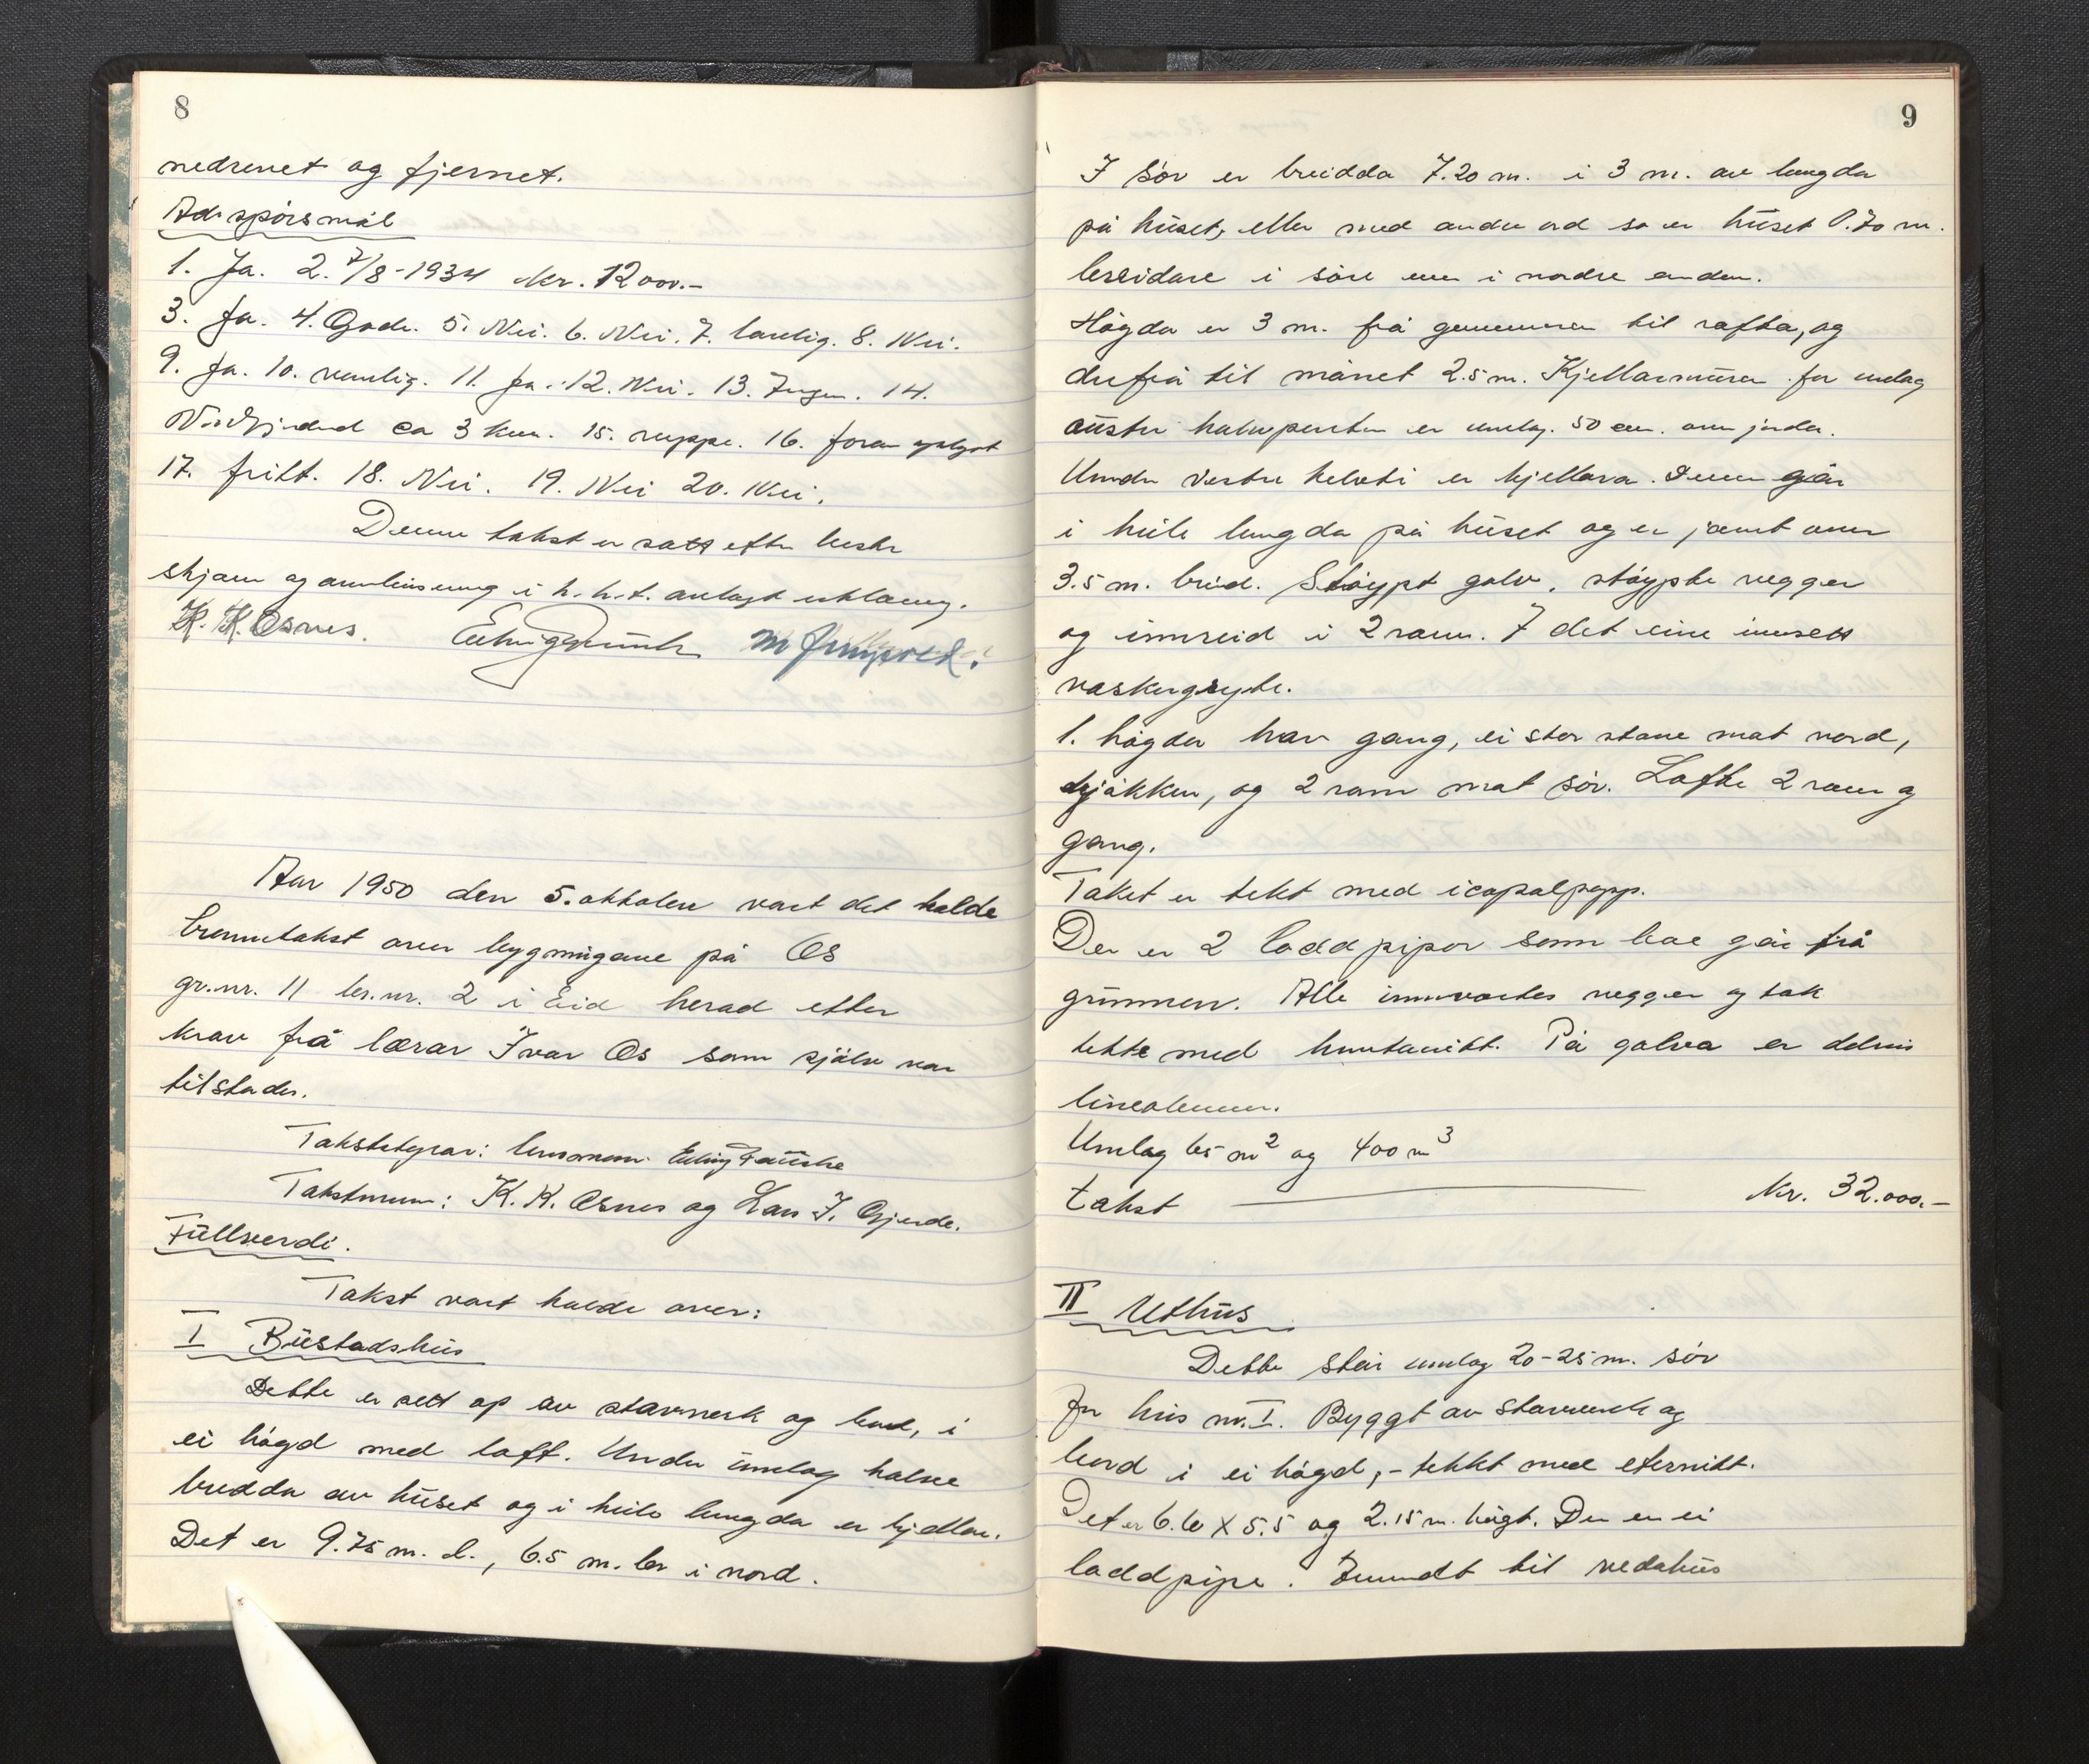 8
nedrevet og fjernet.
Ad. spörsmål
1. Ja. 2. 7/8-1934 kr. 12000.-
3. Ja. 4. Gode. 5. Nei. 6. Nei. 7. lovlig. 8. Nei.
9. Ja. 10. vanlig. 11. Ja. 12. Nei. 13. Ingen. 14.
Nordfjordeid ca 3 km. 15. neppe. 16. foran oplyst
17. fritt. 18. Nei. 19. Nei 20. Nei.
Denne takst er satt efter beste
skjönn og overbevisning i h. h. t. avlagt erklæring.
K. K. Osnes.
Aar 1950 den 5. oktober vart det halde
branntakst over bygningane på Os
gr.nr. 11 br.nr. 2 i Eid herad etter
krav frå lærar Ivar Os som sjölv var
tilstades.
Takstetyrar: lensmann Erling Fauske
Takstmenn: K. K. Osnes og Lars J. Gjerde.
Fullverdi.
Takst vart halde over:
I Bustadshus
Dette er sett op av stavverk og bord, i
ei högd med loft. Under umlag halve
bredda av huset og i heile lengda er kjellar.
Det er 9.75 m. l., 6.5 m. br i nord.
9
I sör er breidda 7.20 m. i 3 m. av lengda
på huset, eller med andre ord so er huset 0.70 m.
breidare i söre enn i nordre enden.
Högda er 3 m. frå grunnmuren til rafta, og
derfrå til mönet 2.5 m. Kjellarmuren for umlag
austre halvparten er umlag. 50 cm. over jorda.
Under vestre helvti er kjellara. Denne går
i heile lengda på huset og er jamt over
3.5 m. breid. Stöypt golv, stöypte vegger
og innreid i 2 rom. I det eine innsett
vaskegryte.
1. högda har gang, ei stor stove mot nord,
kjökken, og 2 rom mot sör. Lofte 2 rom og
gang.
Taket er tekt med icopalpapp.
Der er 2 loddpipor som båe går frå
grunnen. Alle innvortes vegger og tak
tekte med huntonitt. På golva er delvis
lineoleum.
Umlag 65 m2 og 400 m3
takst kr. 32.000.-
II Uthus
Dette står umlag 20-25 m. sör
for hus nr. I. Byggt av stavverk og
bord i ei högd, - tekkt med eternitt.
Det er 6.60 X 5.5 og 2.15 m. högt. Der er ei
loddpipe. Innreidt til vedahus